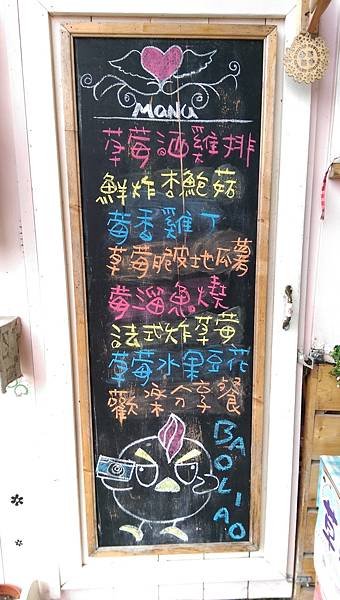 MANU
草莓酒雞排
鮮炸杏鮑菇
莓香雞丁
草莓脆皮地瓜薯
莓溜魚燒
法式炸草莓
草莓水果豆花
歡樂分享餐
BAOLIAO